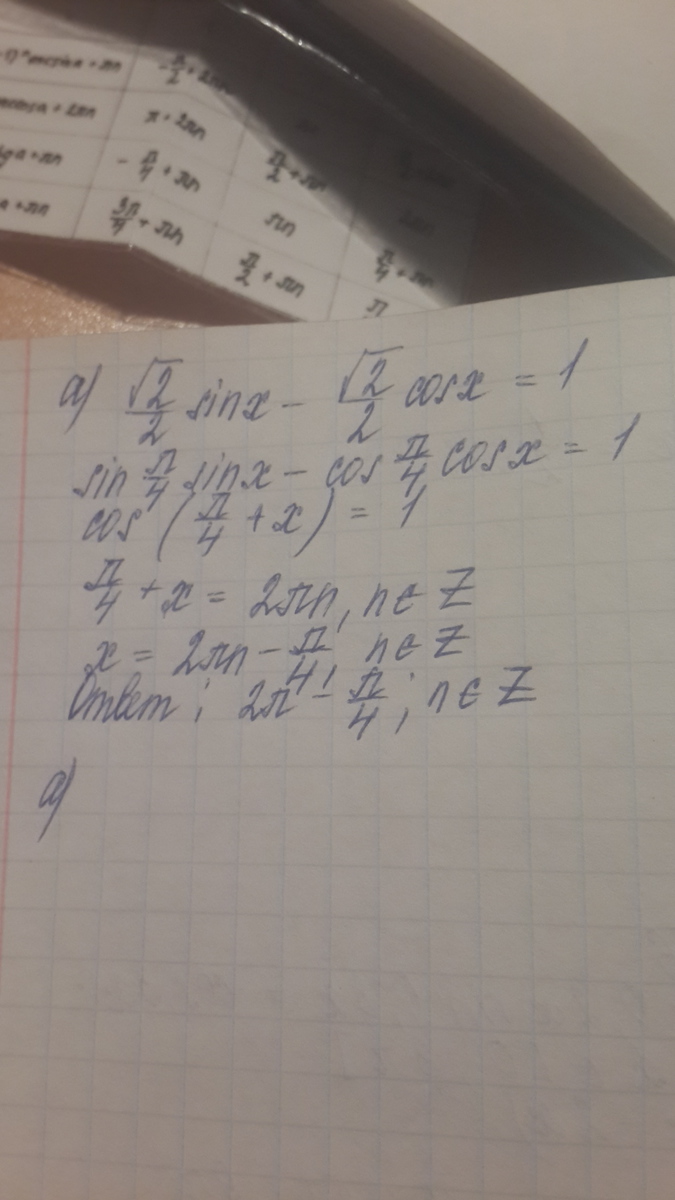 -1)ⁿarcsina+πn -π/2+2πn
arccosa+2πn π+2πn
-π/4+πn π/2+πn
a+πn 3π/4+πn πn
π/2+πn π/4+πn
π
а) √2/2 sinx - √2/2 cosx = 1
sin π/4 sinx - cos π/4 cosx = 1
cos (π/4 + x) = 1
π/4 + x = 2πn, n∈Z
x = 2πn - π/4, n∈Z
Ответ: 2π - π/4; n∈Z
а)